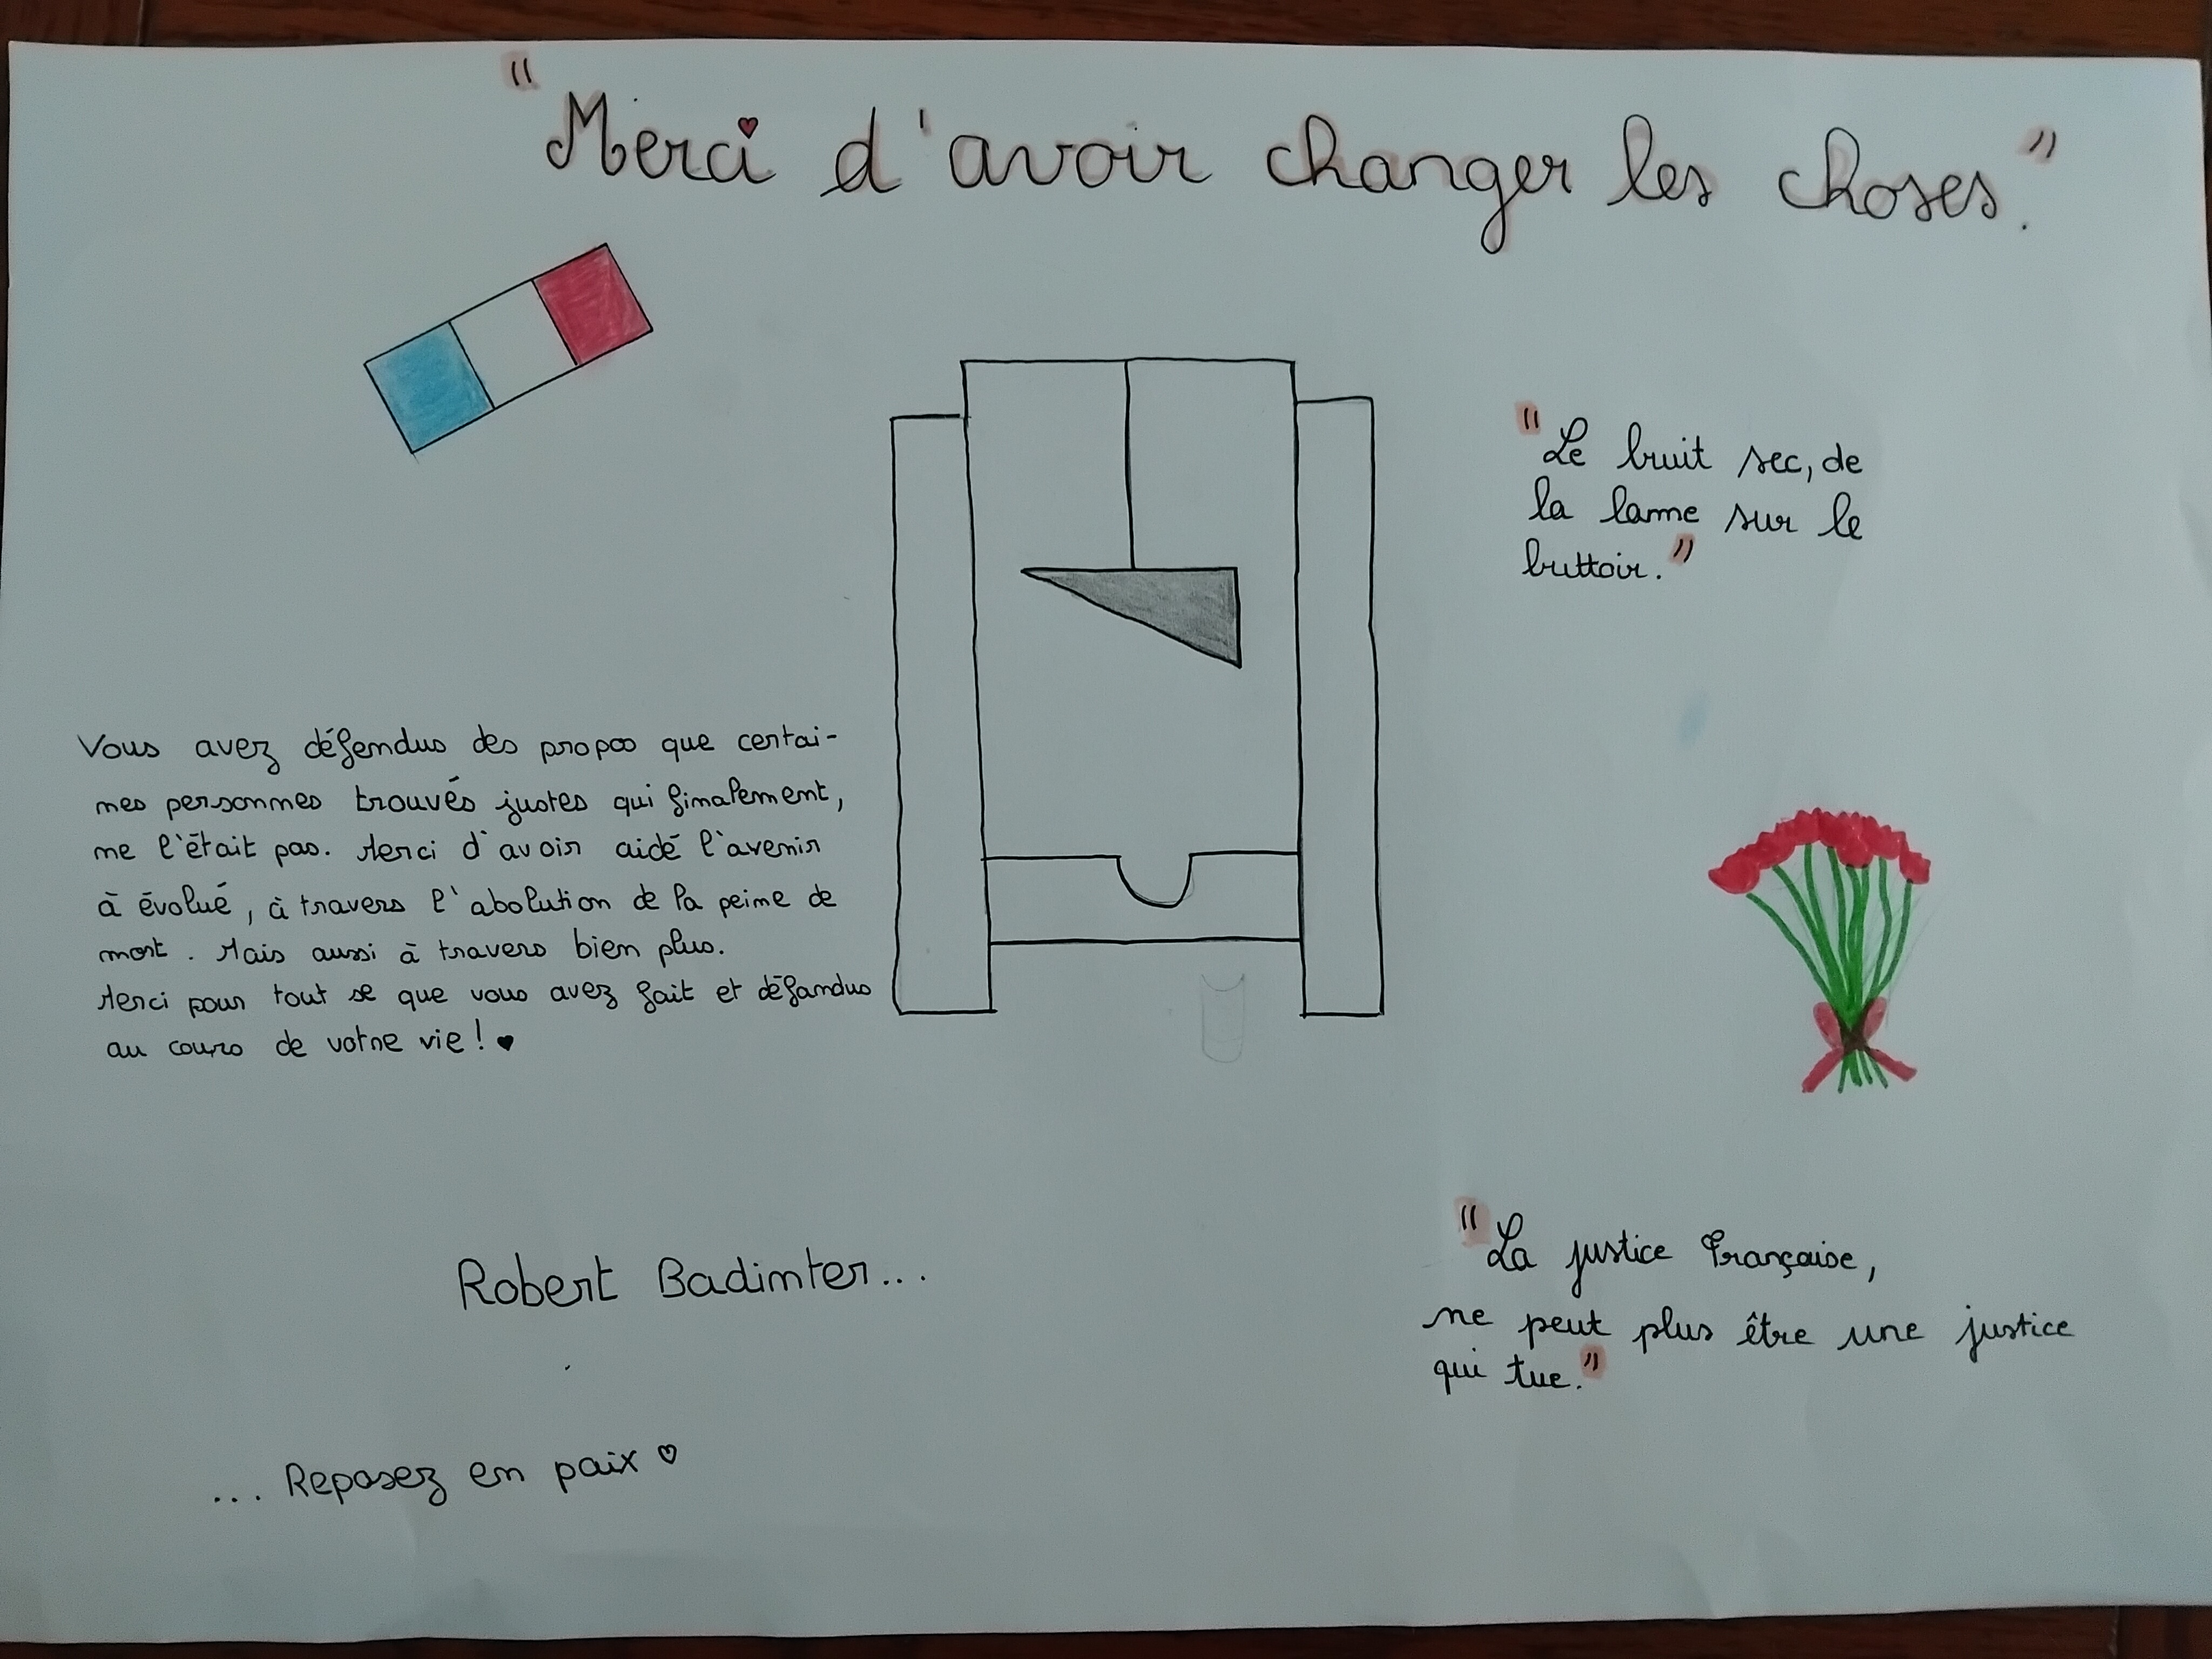 "Merci d'avoir changer les choses."
"Le bruit sec, de
la lame sur le
buttoir."
Vous avez défendus des propos que certai-
nes personnes trouvés justes qui finalement,
ne l'était pas. Merci d'avoir aidé l'avenir
à évolué, à travers l'abolution de la peine de
mort. Mais aussi à travers bien plus.
Merci pour tout se que vous avez fait et défandus
au cours de votre vie ! ♥
"La justice Française,
ne peut plus être une justice
qui tue."
Robert Badinter...
... Reposez en paix ♡